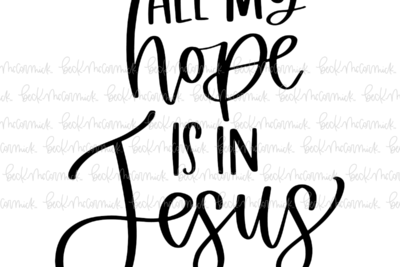 ALL MY
hope
IS IN
Jesus